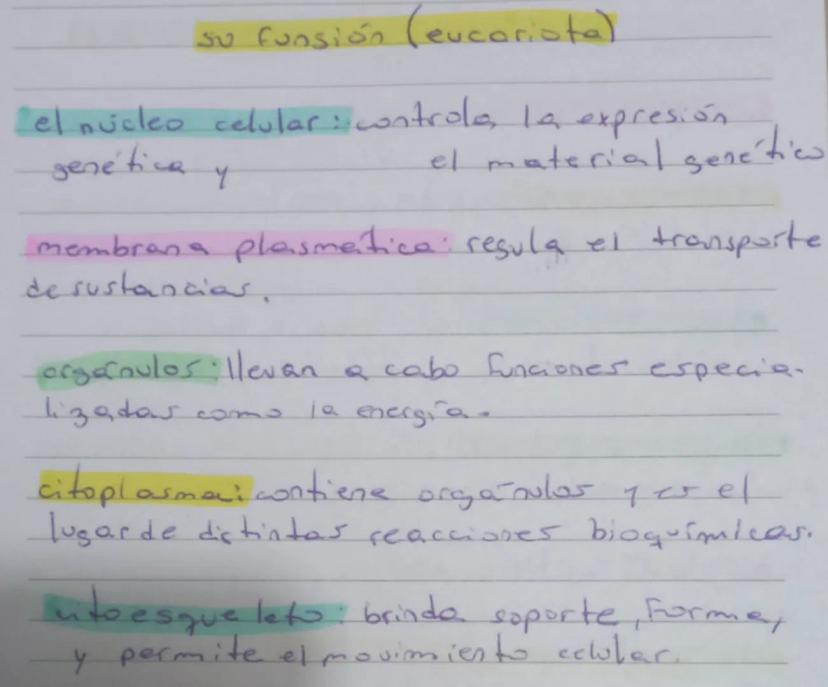 su funsión (eucariota)
el núcleo celular: controla la expresión
genética y el material genético
membrana plasmática: regula el transporte
de sustancias.
orgánulos: llevan a cabo funciones especia-
lizadas como la energía.
citoplasma: contiene orgánulos y es el
lugar de distintas reacciones bioquímicas.
citoesqueleto: brinda soporte, forma,
y permite el movimiento celular.